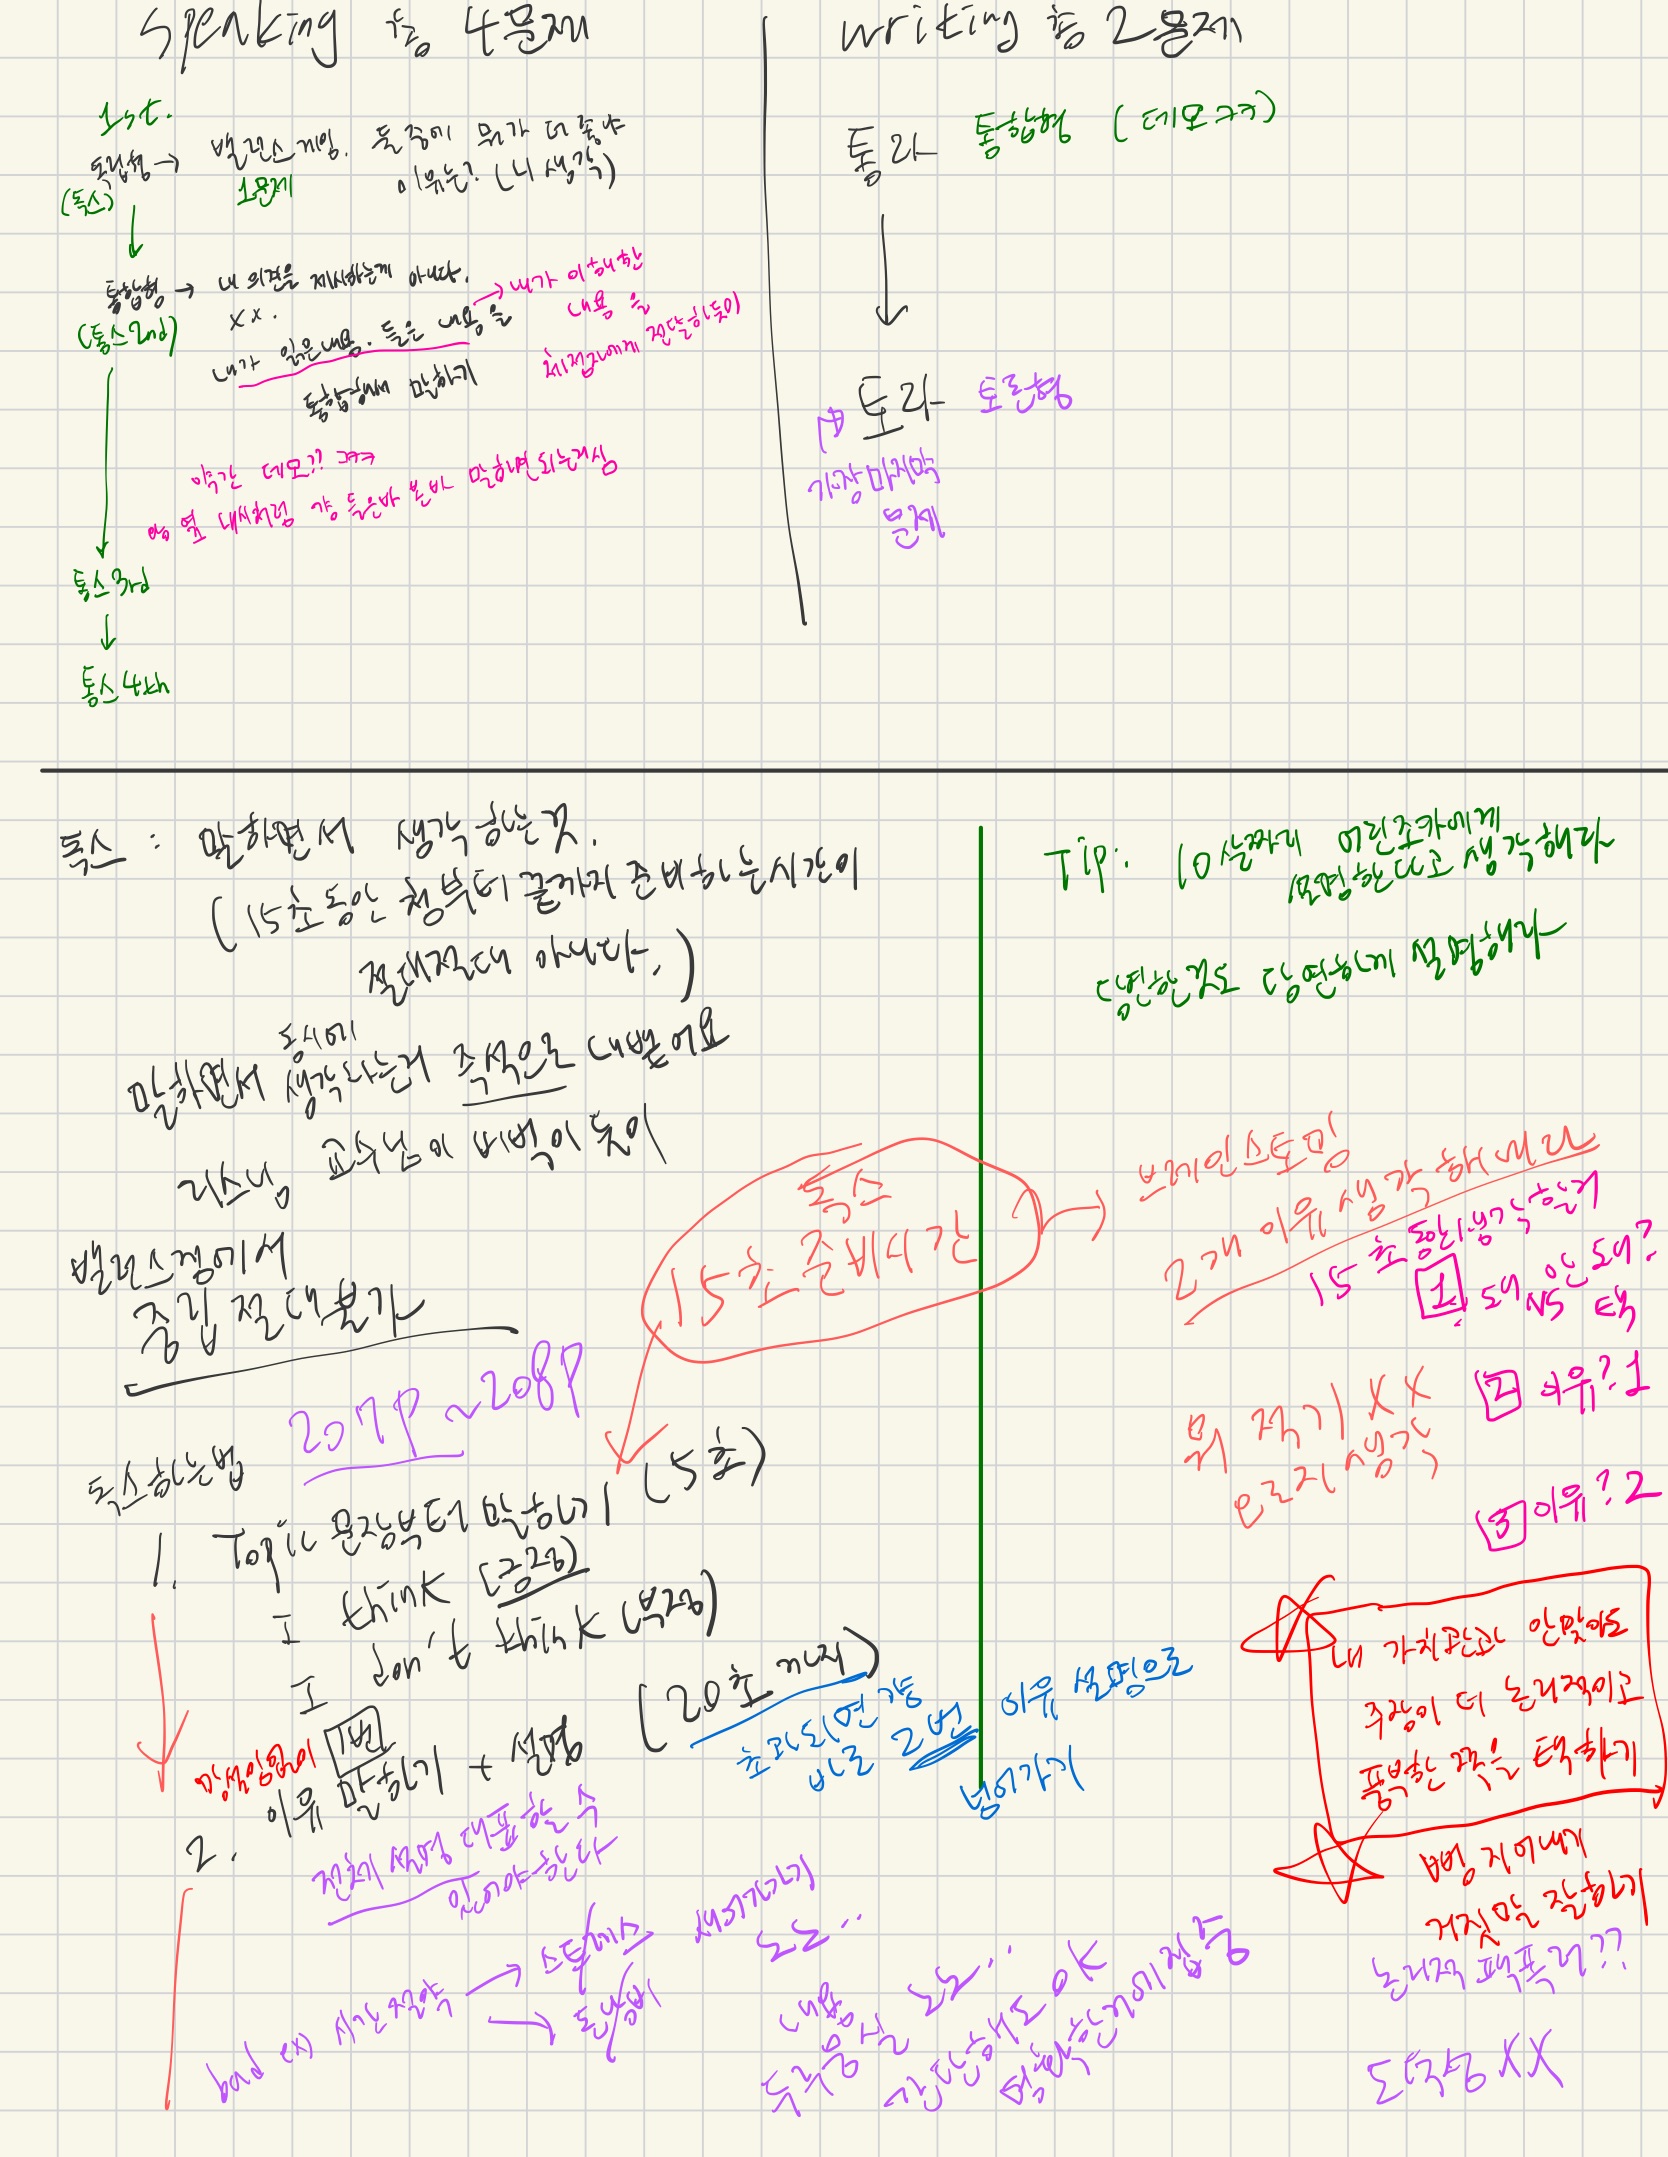 speaking 총 4문제
1st.
독립형 → 밸런스게임. 둘 중에 뭐가 더 좋냐
(독스) 1문제 이유는? (니 생각)
통합형 → 내 의견을 제시하는게 아니다.
(통스 2nd) xx.
내가 읽은내용. 들은 내용을
통합해서 말하기
→ 내가 이해한
내용을
채점자에게 전달하듯이
약간 데모?? ㅋㅋㅋ
걍 들은바 본바 말하면되는거심
통스 3rd
통스 4th
writing 총 2문제
통라 통합형 (데모 ㅋㅋ)
토라 토론형
가장 마지막
문제
독스 : 말하면서 생각하는것.
(15초동안 첨부터 끝까지 준비하는시간이
절대절대 아니다.)
동시에
말하면서 생각나는거 즉석으로 내뱉어요
리스닝 교수님이 버벅이듯이
밸런스겜에서
중립 절대불가
207P ~ 208P
독스하는법
1. Topic 문장부터 말하기 (5초)
I think (긍정)
I don't think (부정)
망설임없이
2. 이유 1번 말하기 + 설명 (20초까지)
초과되면 걍
바로 2번 이유 설명으로
넘어가기
전체 설명 대표할 수
있어야한다
bad ex) 시간절약
→ 스트레스
→ 돈낭비
새의기가기
노노..
내용
두루뭉실 노노...
간단해도 OK
명확한거에집중
Tip: 10살짜리 어린조카에게
설명한다고 생각해라
당연한것도 당연하게 설명해라
독스
15초 준비시간
→ 브레인스토밍
2개 이유 생각해내라
15초동안 생각할거
1. 돼 vs 안 돼? 택
2 이유?1
3 이유?2
뭐 적기 XX
오로지 생각
내 가치관과 안맞아도
주장이 더 논리적이고
풍부한 쪽을 택하기
뻥 지어내게
거짓말 잘하기
논리적 팩폭러??
도덕성 XX